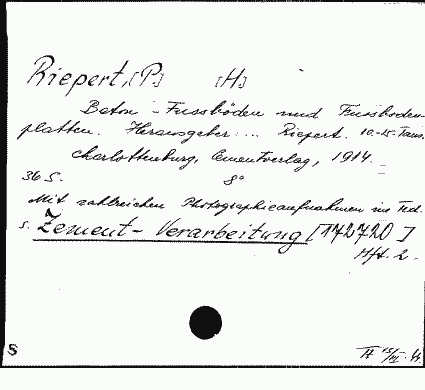 Riepert, [P] [H]
Beton-Fussböden und Fussboden-
platten. Herausgeber: ... Riepert. 10.-15. Taus.
Charlottenburg, Zementverlag, 1914.
36 S. 8°
Mit zahlreichen Photographieaufnahmen im Text.
s. Zement-Verarbeitung [172720]
Hft. 2.
S